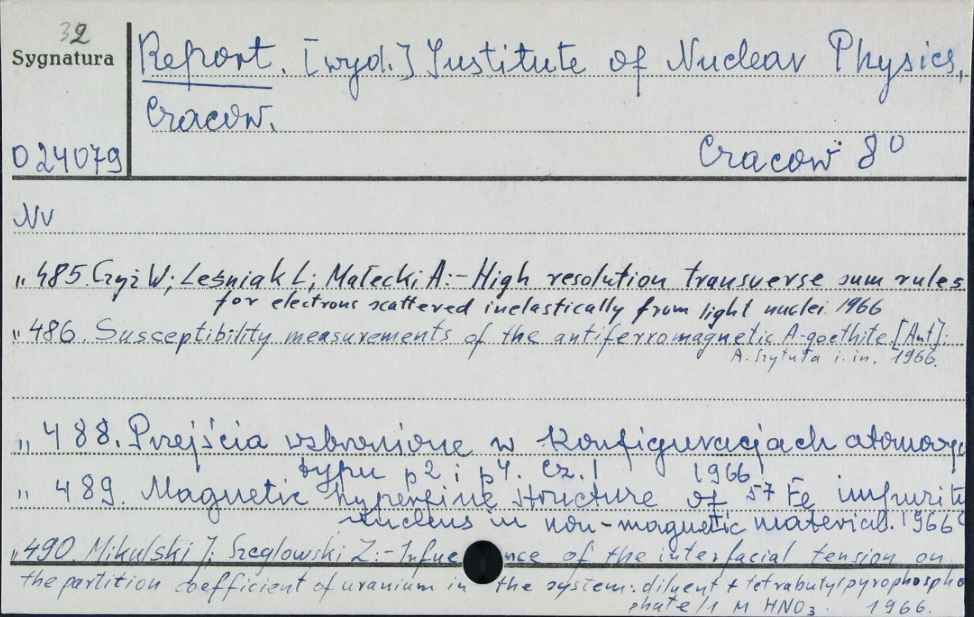 32
Sygnatura
Report. [wyd.] Institute of Nuclear Physics,
Cracow.
D 24079
Cracow 8°
Nv
„ 485. Czyż W; Leśniak L; Małecki A:- High resolution transverse sum rules
for electrons scattered inelastically from light nuclei. 1966
„ 486. Susceptibility measurements of the antiferromagnetic A-goethite. [Aut]:
A. Szytuła i. in. 1966.
„ 488. Przejścia wzbronione w konfiguracjach atomowy
typu p2 i p4. Cz. I 1966
„ 489. Magnetic hyperfine structure of 57 Fe impurity
nucleus in non-magnetic material. 1966
„ 490. Mikulski J; Szeglowski Z:- Infuence of the interfacial tension on
the partition coefficient of uranium in the system: diluent + tetrabutylpyrophospho
phate/1 M HNO3. 1966.